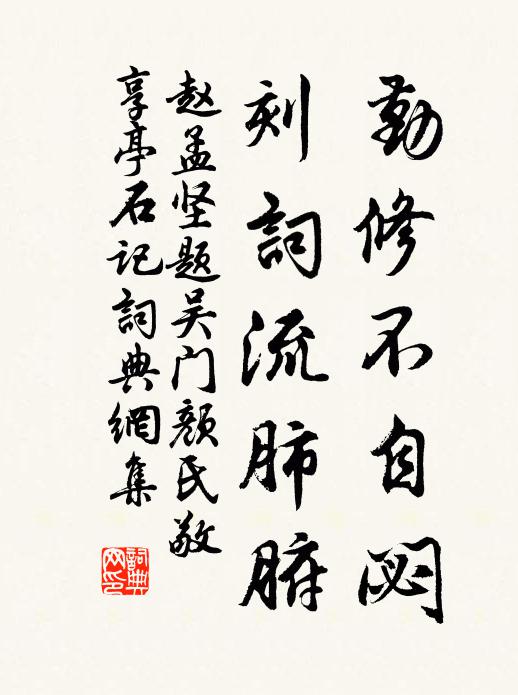 勤修不自閟
刻詞流肺腑
赵孟坚题吴门颜氏敬
享亭石记詞典網集
詞典网印